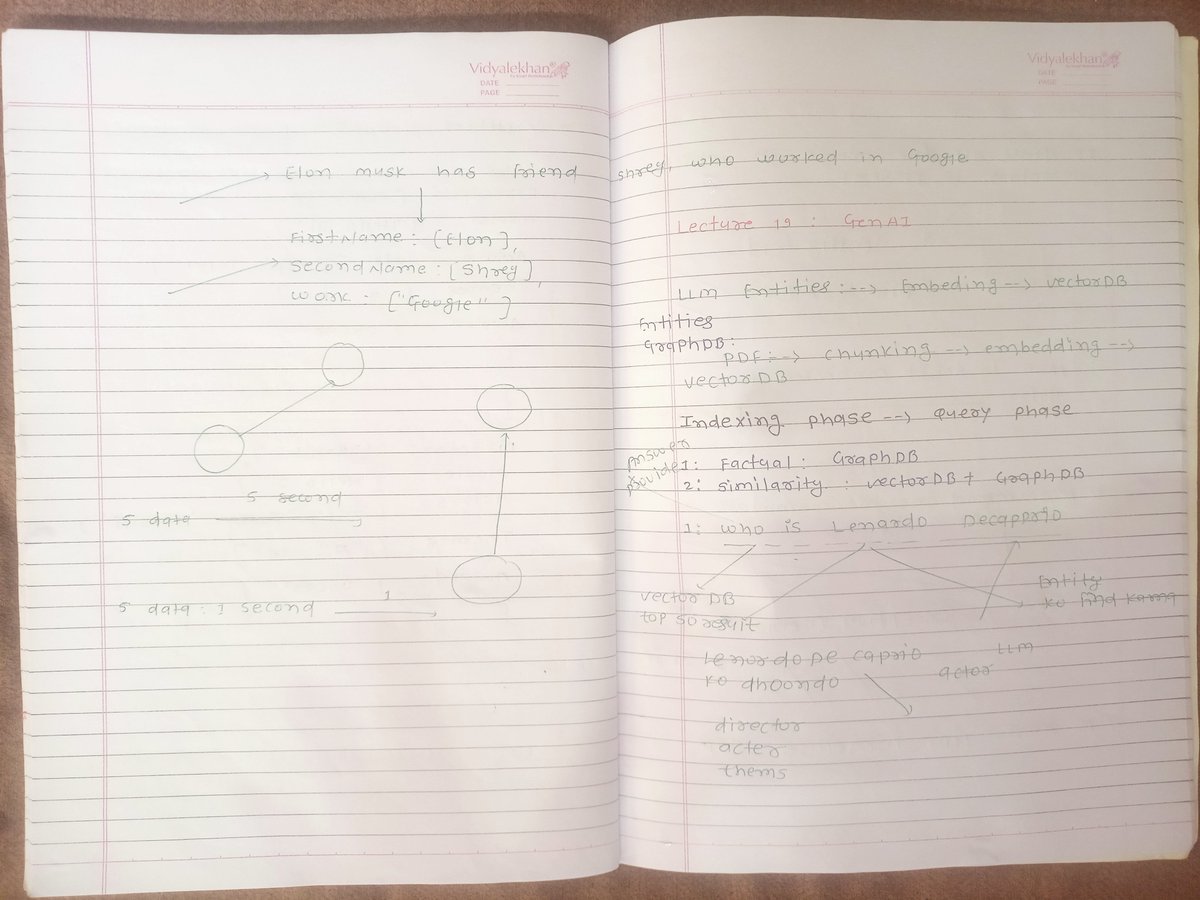 Vidyalekhan
DATE
PAGE
Elon musk has friend shrey, who worked in Google
FirstName: [Elon],
SecondName: [Shrey],
work: ["Google"]
5 second
5 data
5 data: 1 second 1
Vidyalekhan
DATE
PAGE
Lecture 19: GenAI
LLM Entities: --> Embeding --> vectorDB
Entities
GraphDB:
PDF: --> chunking --> embedding -->
vectorDB
Indexing phase --> query phase
Answer
provide
1: Factual: GraphDB
2: similarity: vectorDB + GraphDB
1: who is Lenardo Decapprio
vector DB
top 50 result
Entity
ko find karna
Lenordo De caprio
ko dhoondo
LLM
actor
director
acter
thems